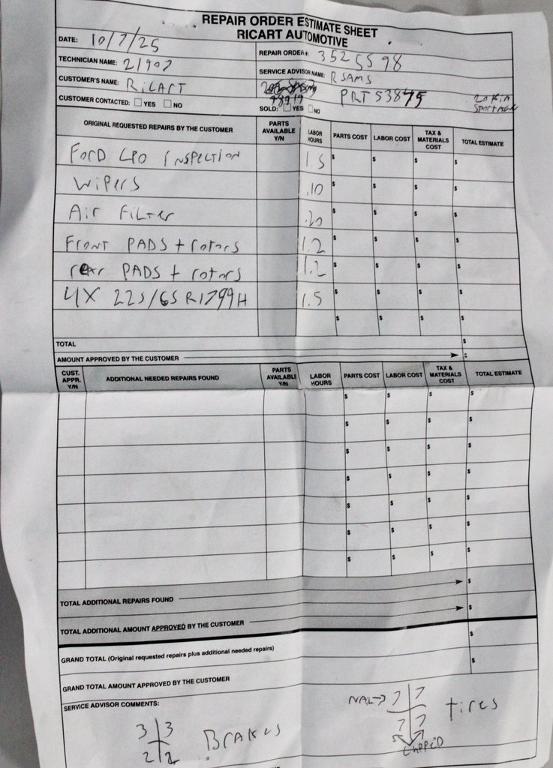 REPAIR ORDER ESTIMATE SHEET
RICART AUTOMOTIVE
DATE: 10/7/25
REPAIR ORDER#: 3525598
TECHNICIAN NAME: 21907
SERVICE ADVISOR NAME: R SAMS
CUSTOMER'S NAME: RiCART
PRT53875
CUSTOMER CONTACTED: YES NO
SOLD: YES NO
ORIGINAL REQUESTED REPAIRS BY THE CUSTOMER PARTS AVAILABLE Y/N LABOR HOURS PARTS COST LABOR COST TAX & MATERIALS COST TOTAL ESTIMATE
FORD CPO INSPECTION 1.5 $ $ $ $
WIPERS .10 $ $ $ $
AiR FiLTER .20 $ $ $ $
FRONT PADS + rotors 1.2 $ $ $ $
rear PADS + rotors 1.2 $ $ $ $
4X 225/65R1799H 1.5 $ $ $ $
$ $ $ $
TOTAL $
AMOUNT APPROVED BY THE CUSTOMER $
CUST. APPR. Y/N ADDITIONAL NEEDED REPAIRS FOUND PARTS AVAILABLE Y/N LABOR HOURS PARTS COST LABOR COST TAX & MATERIALS COST TOTAL ESTIMATE
$ $ $ $
$ $ $ $
$ $ $ $
$ $ $ $
$ $ $ $
$ $ $ $
$ $ $ $
TOTAL ADDITIONAL REPAIRS FOUND $
TOTAL ADDITIONAL AMOUNT APPROVED BY THE CUSTOMER $
GRAND TOTAL (Original requested repairs plus additional needed repairs) $
GRAND TOTAL AMOUNT APPROVED BY THE CUSTOMER $
SERVICE ADVISOR COMMENTS:
3 3
2 2
BRAKES
NAL→ 7 7
7 7
tires
CUPPED